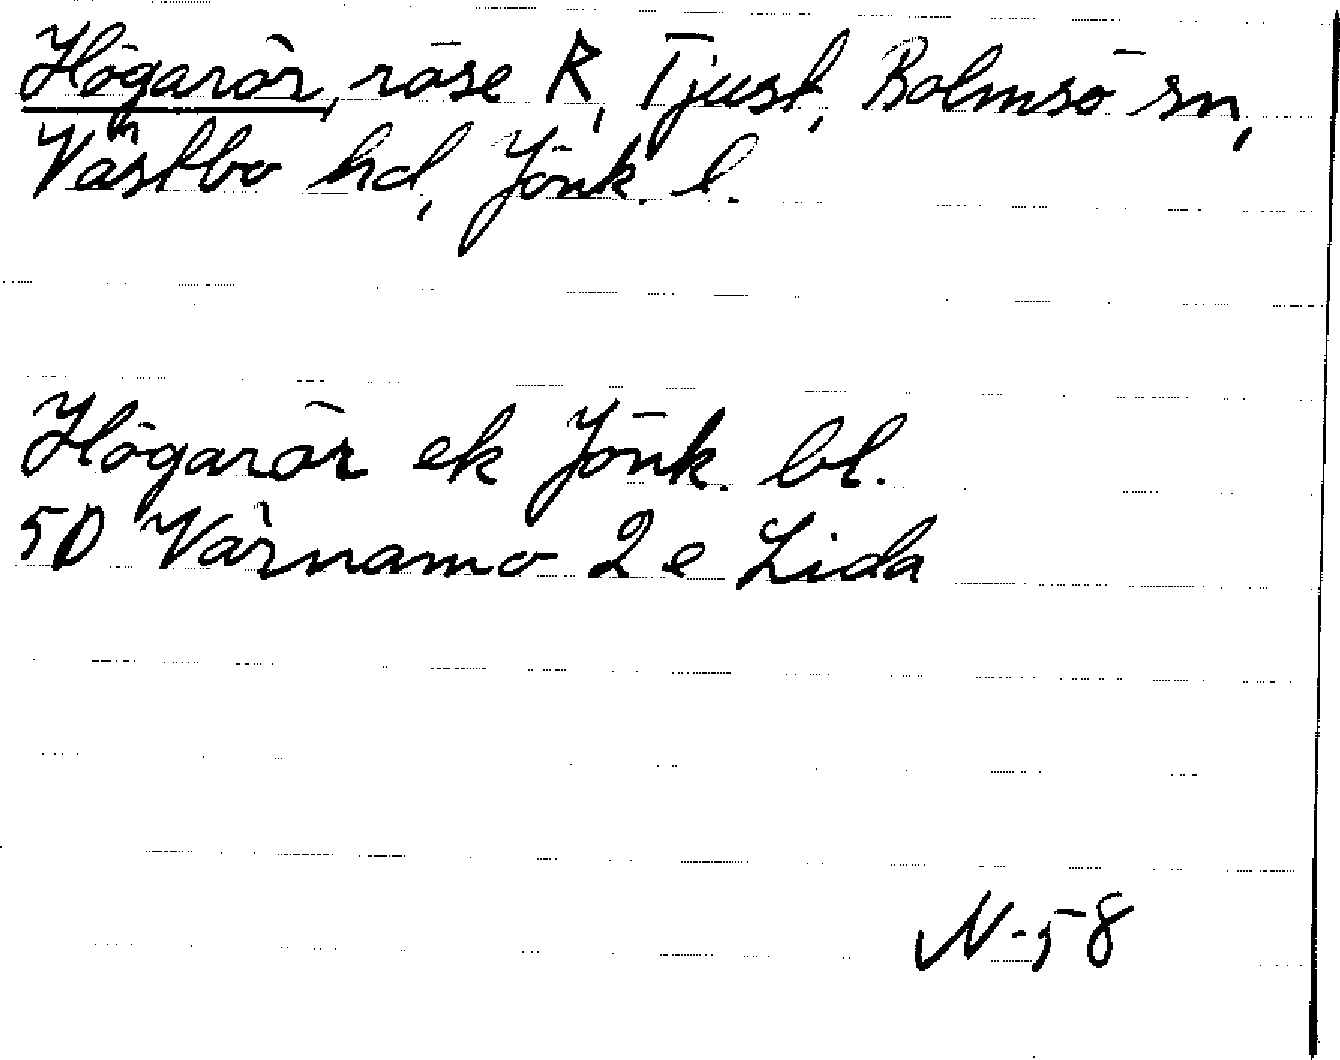 Högarör, röse R, Tjust, Bolmsö sn,
Västbo hd, Jönk. l.
Högarör ek Jönk. bl.
5D Värnamo 2 e Lida
N-58